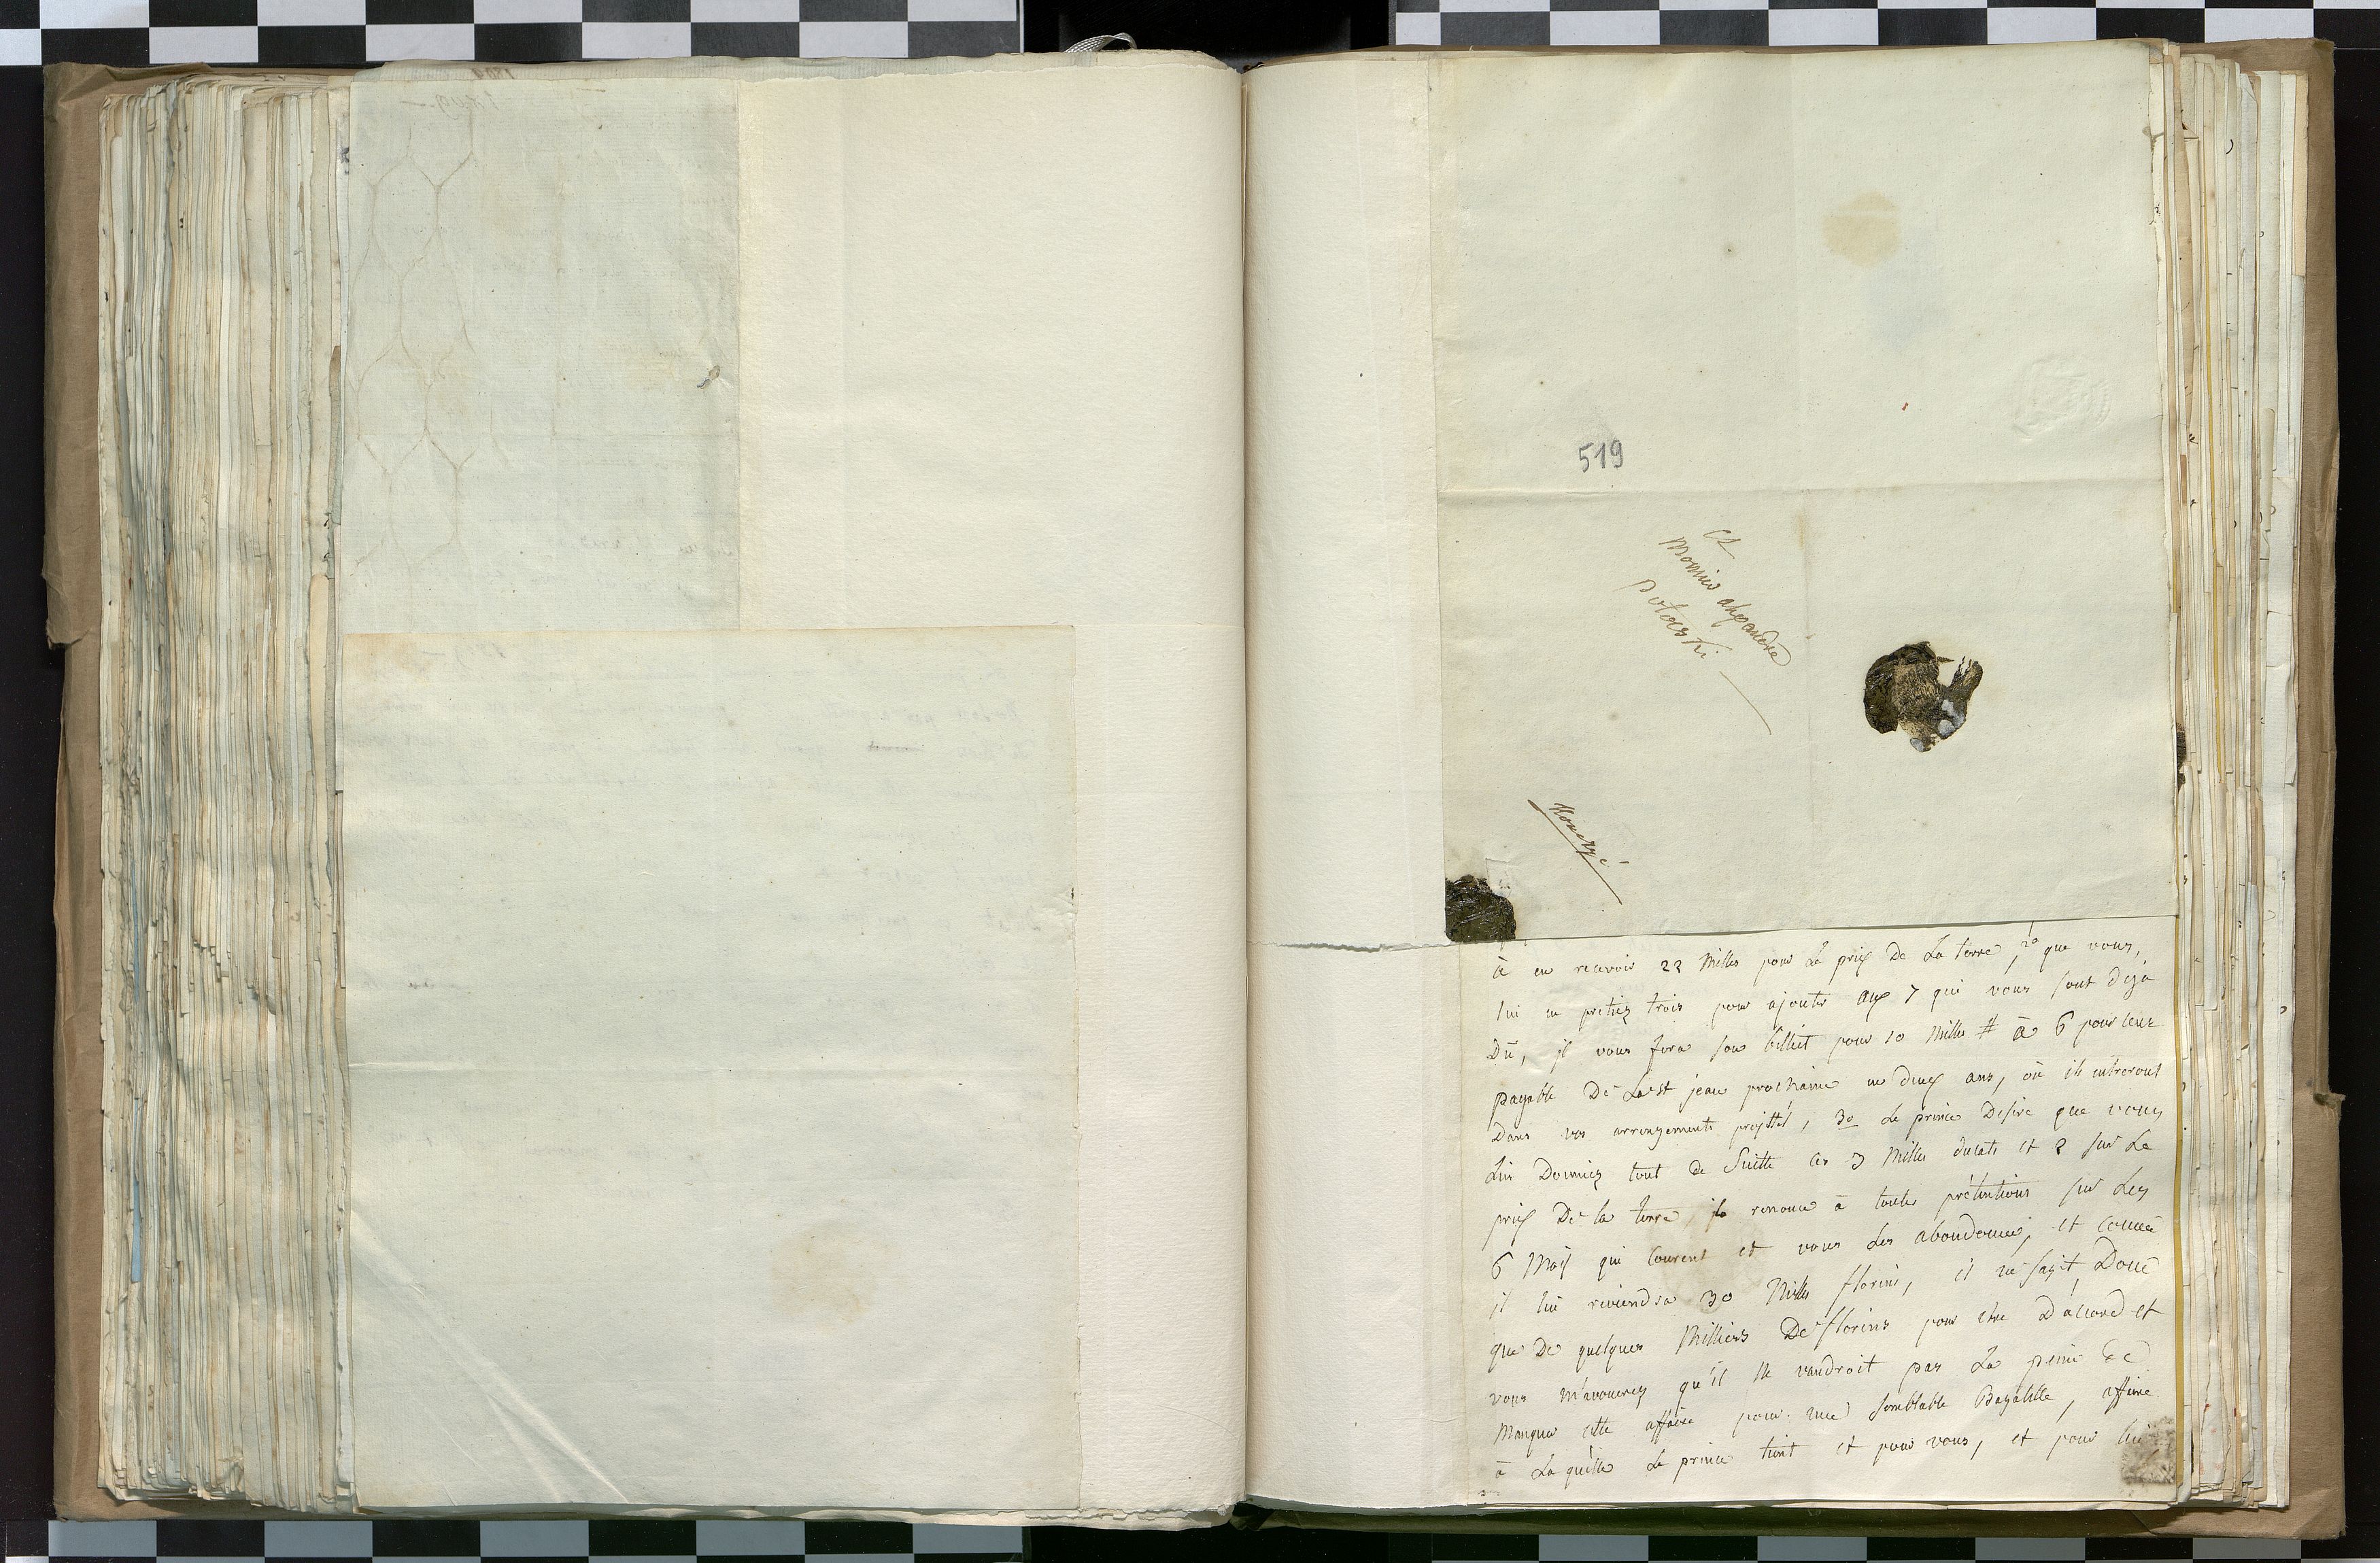 519
A
Monsieur alexandre
Potocki
à en recevoir 22 Milles pour Le prix De La terre, 2º que vous,
lui en pretiez trois pour ajouter aux 7 qui vous sont deja
Dû, il vous fera son billiet pour 10 Milles # à 6 pour cent
payable De La St jean prochaine en deux ans, où ils entreront
Dans vos arrengements projettés, 3º Le prince Desire que vous
Lui Donniez tout de Suitte ces 3 Milles ducats et 2 sur Le
prix De la terre, il renonce à toutes prétentions sur Les
6 Mois qui Courent et vous Les abondonne, et comme
il lui reviendra 30 Milles florins, il ne sagit Donc
que De quelques Milliers De florins pour etre D'accord et
vous m'avouerez qu'il ne vaudroit pas La peine de
Manquer cette affaire pour une semblable Bagatelle, affaire
à La quelle Le prince tient et pour vous, et pour lui